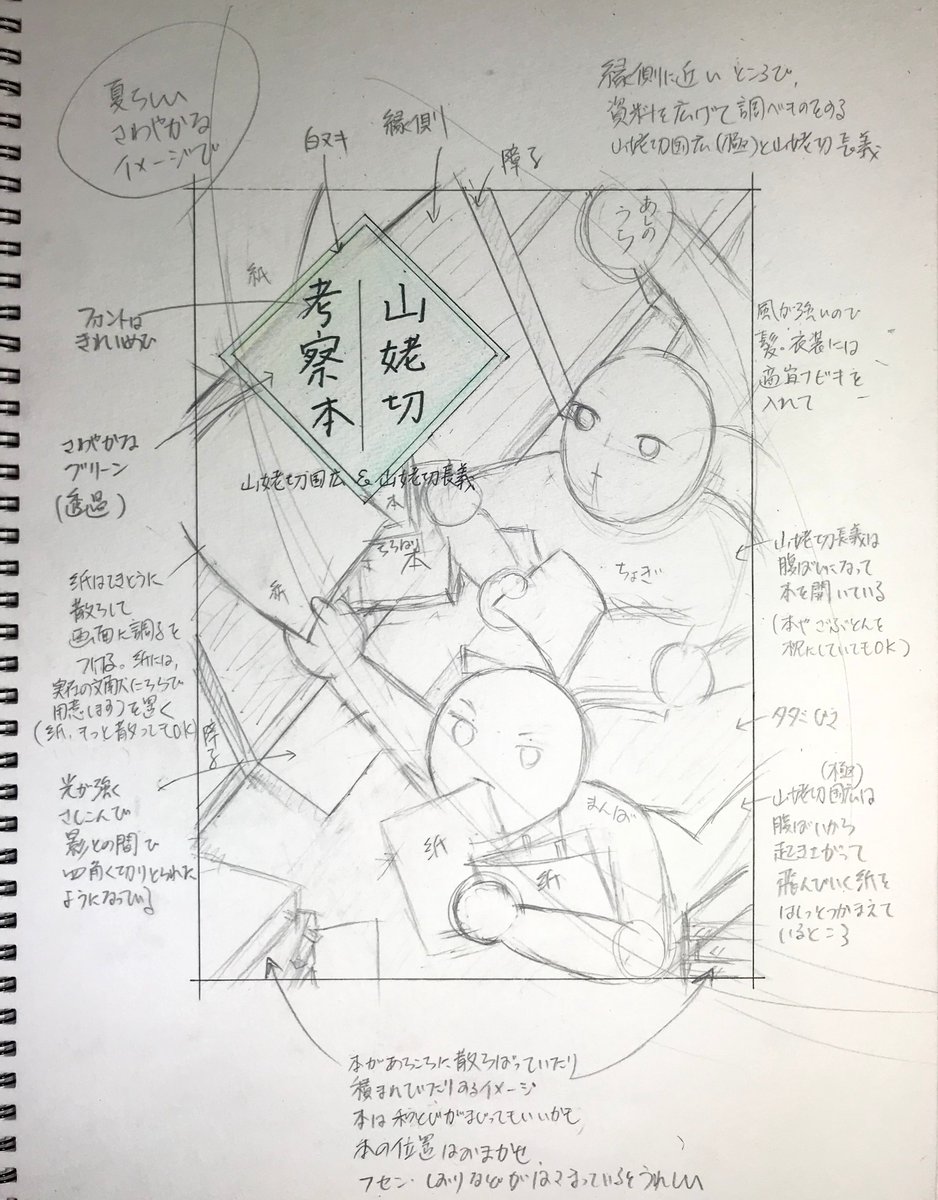 夏らしい
さわやかな
イメージで
白ヌキ
縁側
障子
縁側に近いところで、
資料を広げて調べものをする
山姥切国広(極)と山姥切長義
あしの
うら
紙
山姥切
考察本
山姥切国広 & 山姥切長義
フォントは
きれいめで
さわやかな
グリーン
(透過)
風が強いので
髪、衣装には
適宜ナビキを
入れて
本
ちらばる
本
紙
ちょぎ
紙はてきとうに
散らして
画面に調子を
つける。紙には、
実在の文面(こちらで
用意します)を置く
(紙、もっと散ってもOK)
障子
山姥切長義は
腹ばいになって
本を開いている
(本やざぶとんを
枕にしていてもOK)
タタミ
光が強く
さしこんで
影との間で
四角く切りとられた
ようになっている
(極)
山姥切国広は
腹ばいから
起き上がって
飛んでいく紙を
はしっとつかまえて
いるところ
まんば
紙
紙
本があちこちに散らばっていたり
積まれていたりするイメージ
本は和とじがまじってもいいかも
本の位置はおまかせ
フセン・しおりなどがはさまっているとうれしい